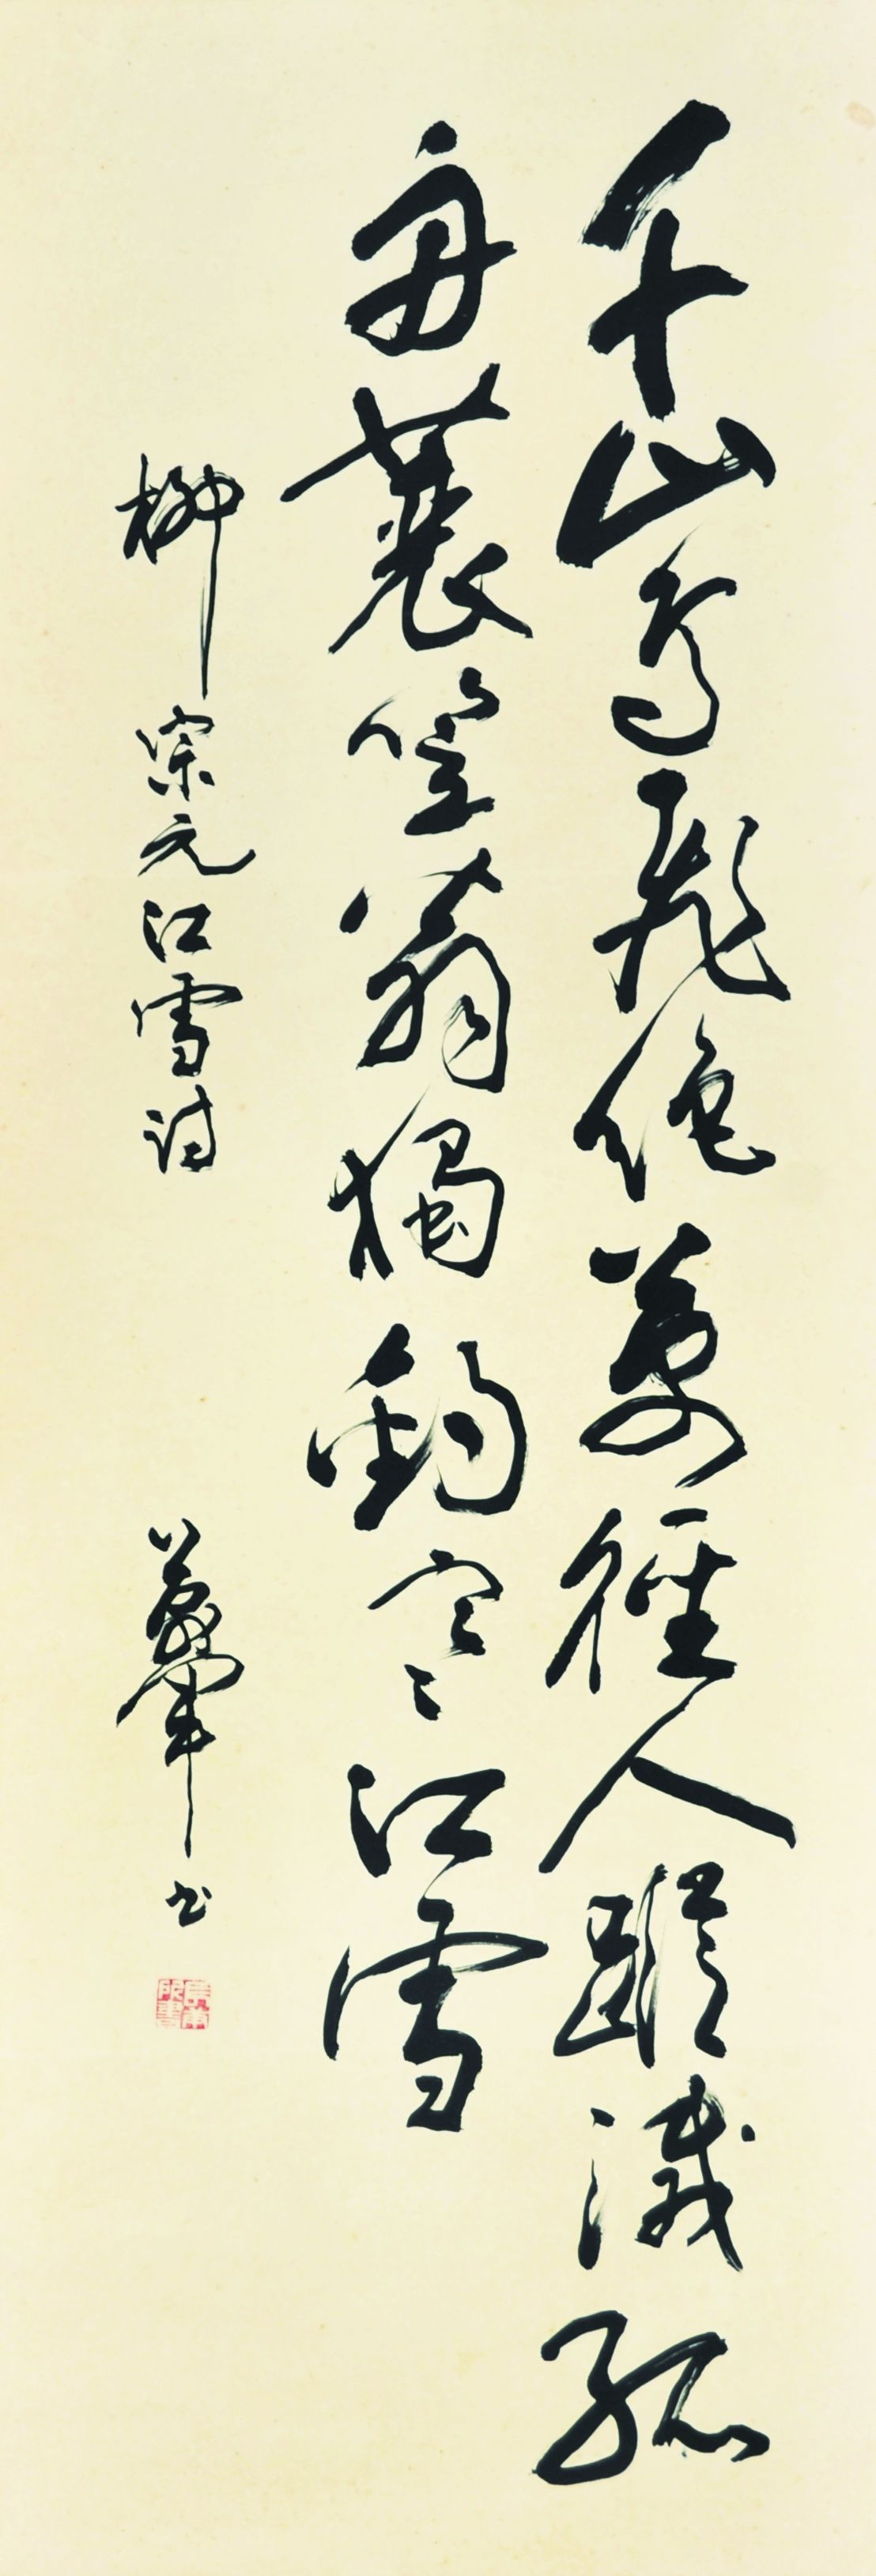 千山鳥飛絕萬徑人蹤滅孤
舟蓑笠翁獨釣寒江雪
柳宗元江雪詩
書